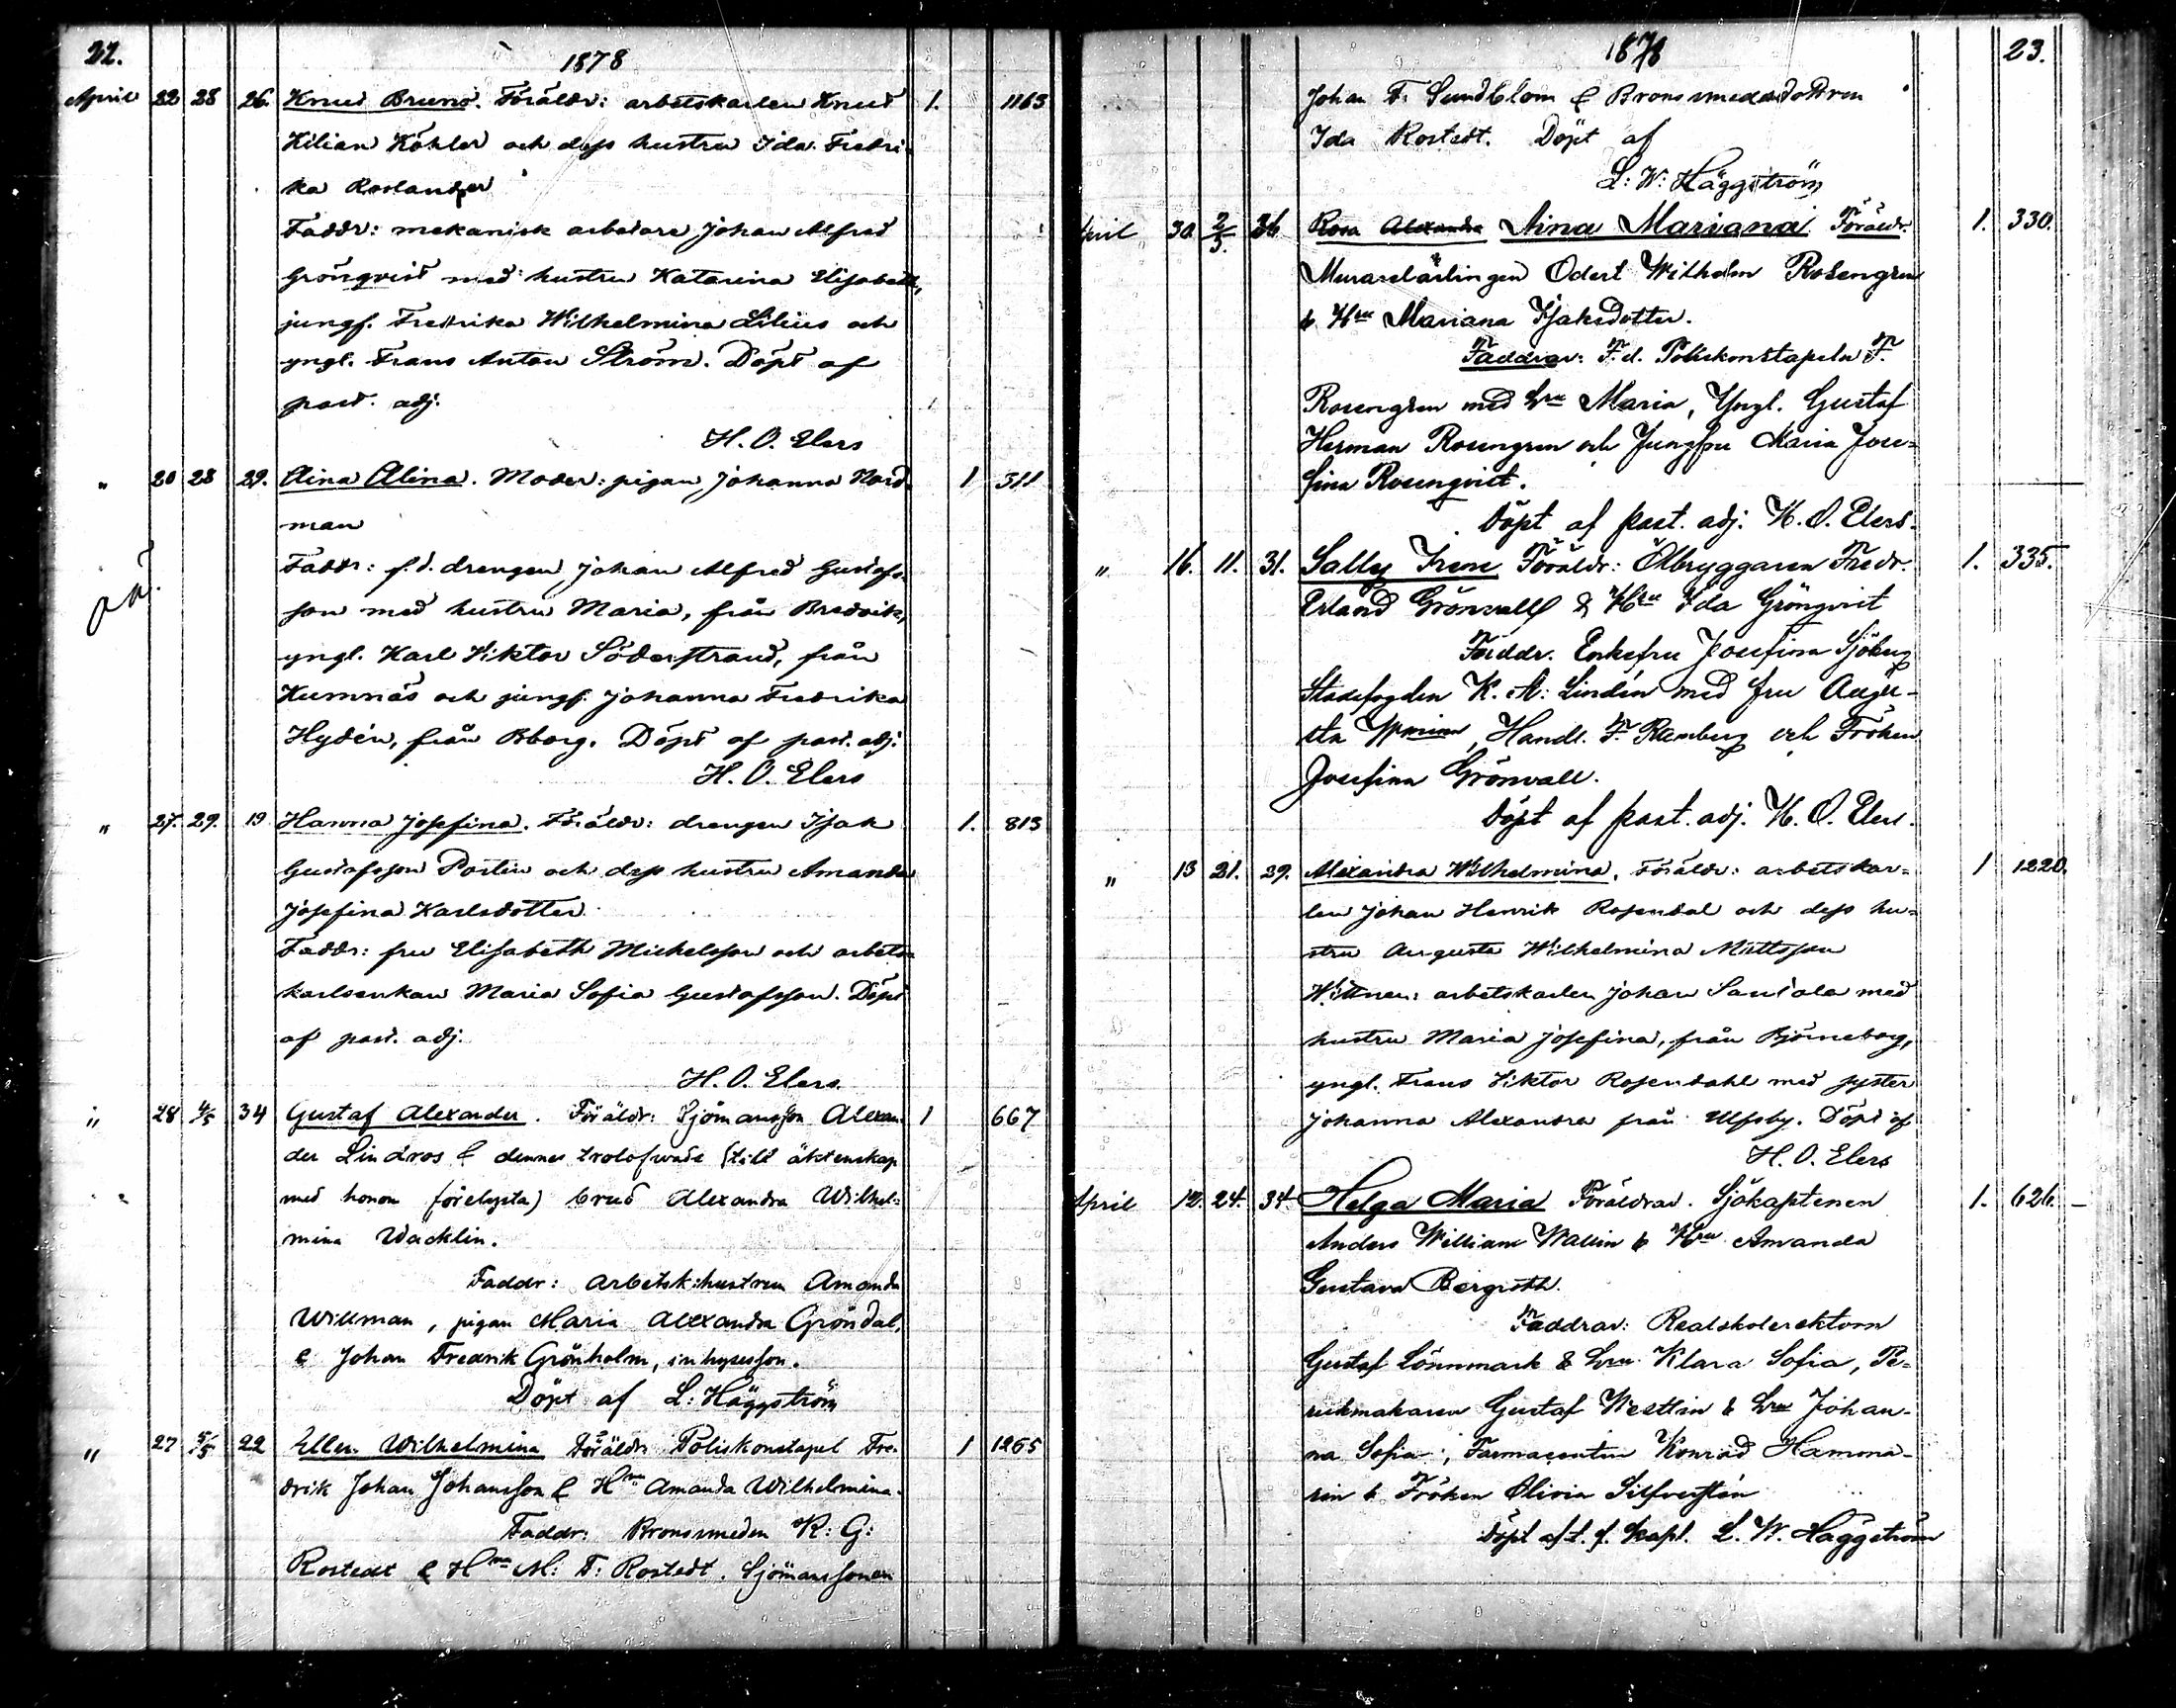 22.
1878
April 22 28 26. Knud Bruno. Föräldr: arbetskarlen Knud 1. 1163
Kilian Köhler och dess hustru Ida Fredri-
ka Roslander
Faddr: mekanisk arbetare Johan Alfred
Grönqvist med hustru Katarina Elisabeth,
jungf. Fredrika Wilhelmina Lilius och
yngl. Frans Anton Ström. Döpt af
past. adj.
H. O. Elers
" 20 28 29. Aina Alina. Moder: pigan Johanna Nord- 1 511
man
Faddr: f. d. drengen Johan Alfred Gustafs-
son med hustru Maria, från Bredvik,
yngl. Karl Viktor Söderstrand, från
Kumnäs och jungf. Johanna Fredrika
Hydén, från Bborg. Döpt af past. adj.
H. O. Elers
" 27. 29. 19 Hanna Josefina. Föräldr: drengen Isak 1. 813
Gustafsson Postin och dess hustru Amanda
Josefina Karlsdotter
Faddr: fru Elisabeth Michelsson och arbets-
karlsenkan Maria Sofia Gustafsson. Döpt
af past. adj.
H. O. Elers.
" 28 4/5 34 Gustaf Alexander. Föräldr: Sjömansson Alexan- 1 667
der Lindros & dennes trolofvade (till äktenskap
med honom förelysta) brud Alexandra Wilhel-
mina Wacklin.
Faddr: arbetsk:hustrun Amanda
Willman, pigan Maria Alexandra Gröndal,
& Johan Fredrik Grönholm, inhysesson.
Döpt af L: Häggström
" 27 5/5 22 Ellen Wilhelmina Föräldr Poliskonstapel Fre- 1 1265
drik Johan Johansson & Hru Amanda Wilhelmina.
Faddr: Bronssmeden K: G:
Rostedt & Hru M: F: Rostedt. Sjömanssonen
1878
23.
Johan F. Sundblom & Bronssmedsdottren
Ida Rostedt. Döpt af
L: W: Häggström
April 30. 2/5. 36 Rosa Alexandra Aina Mariana. Föräldr. 1. 330.
Muraselärlingen Odert Wilhelm Rosengren
& Hru Mariana Isaksdotter.
Faddrar: F. d. Poliskonstapeln F.
Rosengren med hru Maria, Yngl. Gustaf
Herman Rosengren och Jungfru Maria Jose-
fina Rosenqvist.
Döpt af past. adj. H. O. Elers.
" 16. 11. 31. Sally Irene Föräldr: Ölbryggaren Fredr. 1. 335.
Erland Grönvall & Hru Ida Grönqvist
Faddr. Enkefru Josefina Sjöberg
Stadsfogden K. A: Lindén med fru Augu-
sta, Handl. F. Ramberg och Fröken
Josefina Grönvall.
Döpt af past. adj. H. O. Elers.
" 13 21. 29. Alexandra Wilhelmina. Föräldr: arbetskar- 1 1220.
len Johan Henrik Rosendal och dess hu-
stru Augusta Wilhelmina Mattsson
Wittnen: arbetskarlen Johan Santala med
hustru Maria Josefina, från Björneborg,
yngl. Frans Viktor Rosendahl med syster
Johanna Alexandra från Ulfsby. Döpt af
H. O. Elers
April 12. 24. 34. Helga Maria Föräldrar. Sjökaptenen 1. 626.
Anders William Wallin & Hru Amanda
Gustava Bergroth.
Faddrar: Realskolerektorn
Gustaf Lönnmark & hru Klara Sofia, Pe-
rukmakaren Gustaf Westlin & hru Johan-
na Sofia, Farmaceuten Konrad Hamma-
rén & Fröken Olivia Silfverstén
Döpt af t. f. kapl. L. W. Häggström